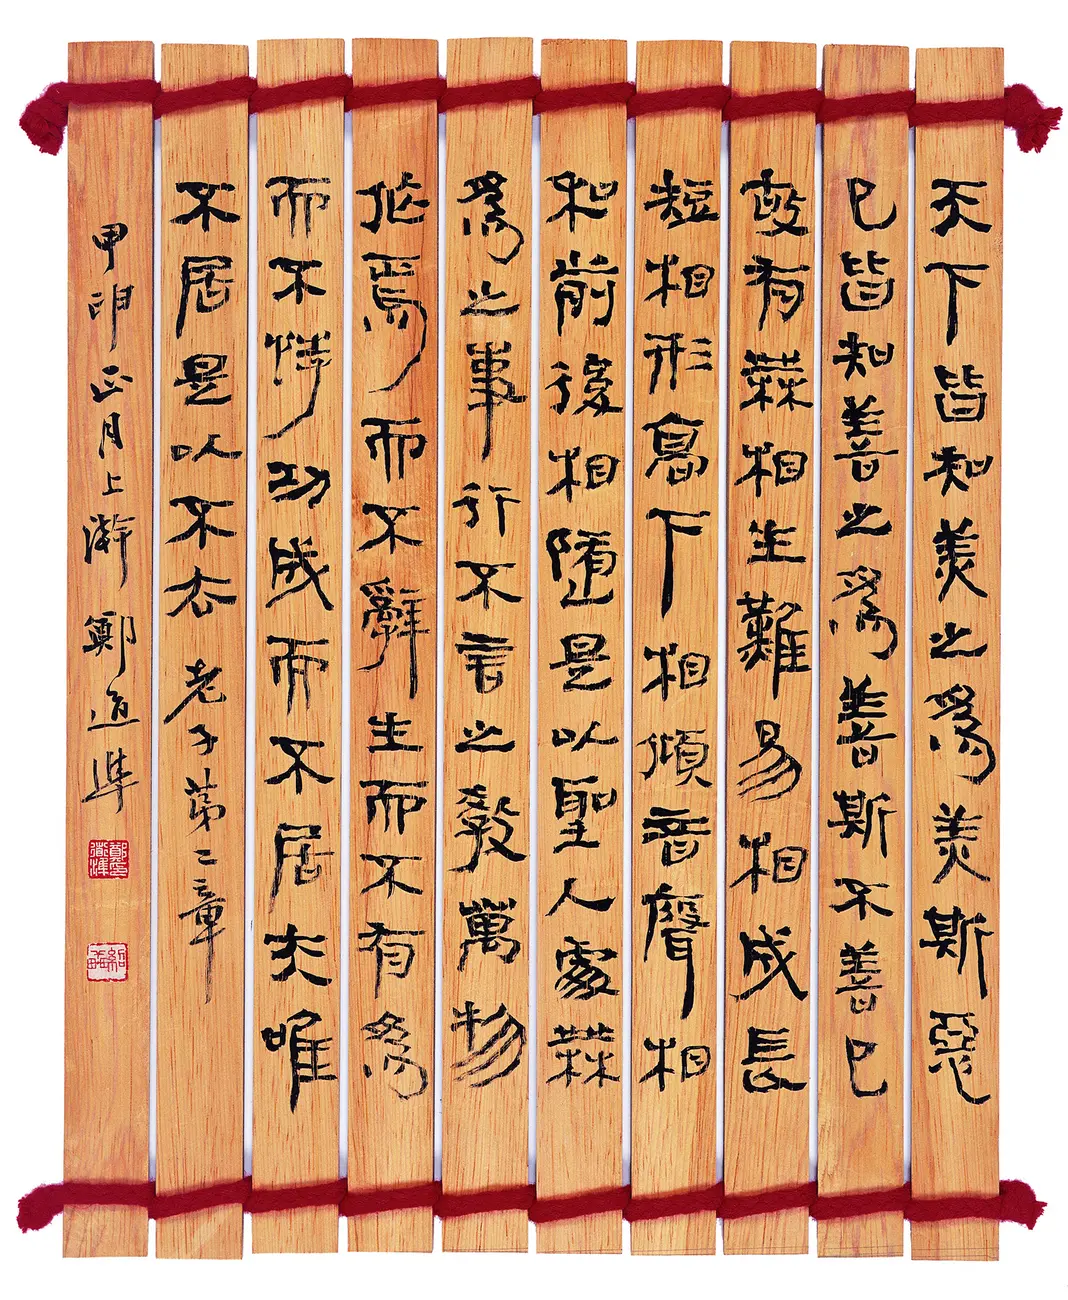 天下皆知美之爲美斯惡
已皆知善之爲善斯不善已
故有無相生難易相成長
短相形高下相傾音聲相
和前後相隨是以聖人處無
爲之事行不言之教萬物
作焉而不辭生而不有爲
而不恃功成而不居夫唯
不居是以不去 老子第二章
甲申正月上澣鄭道